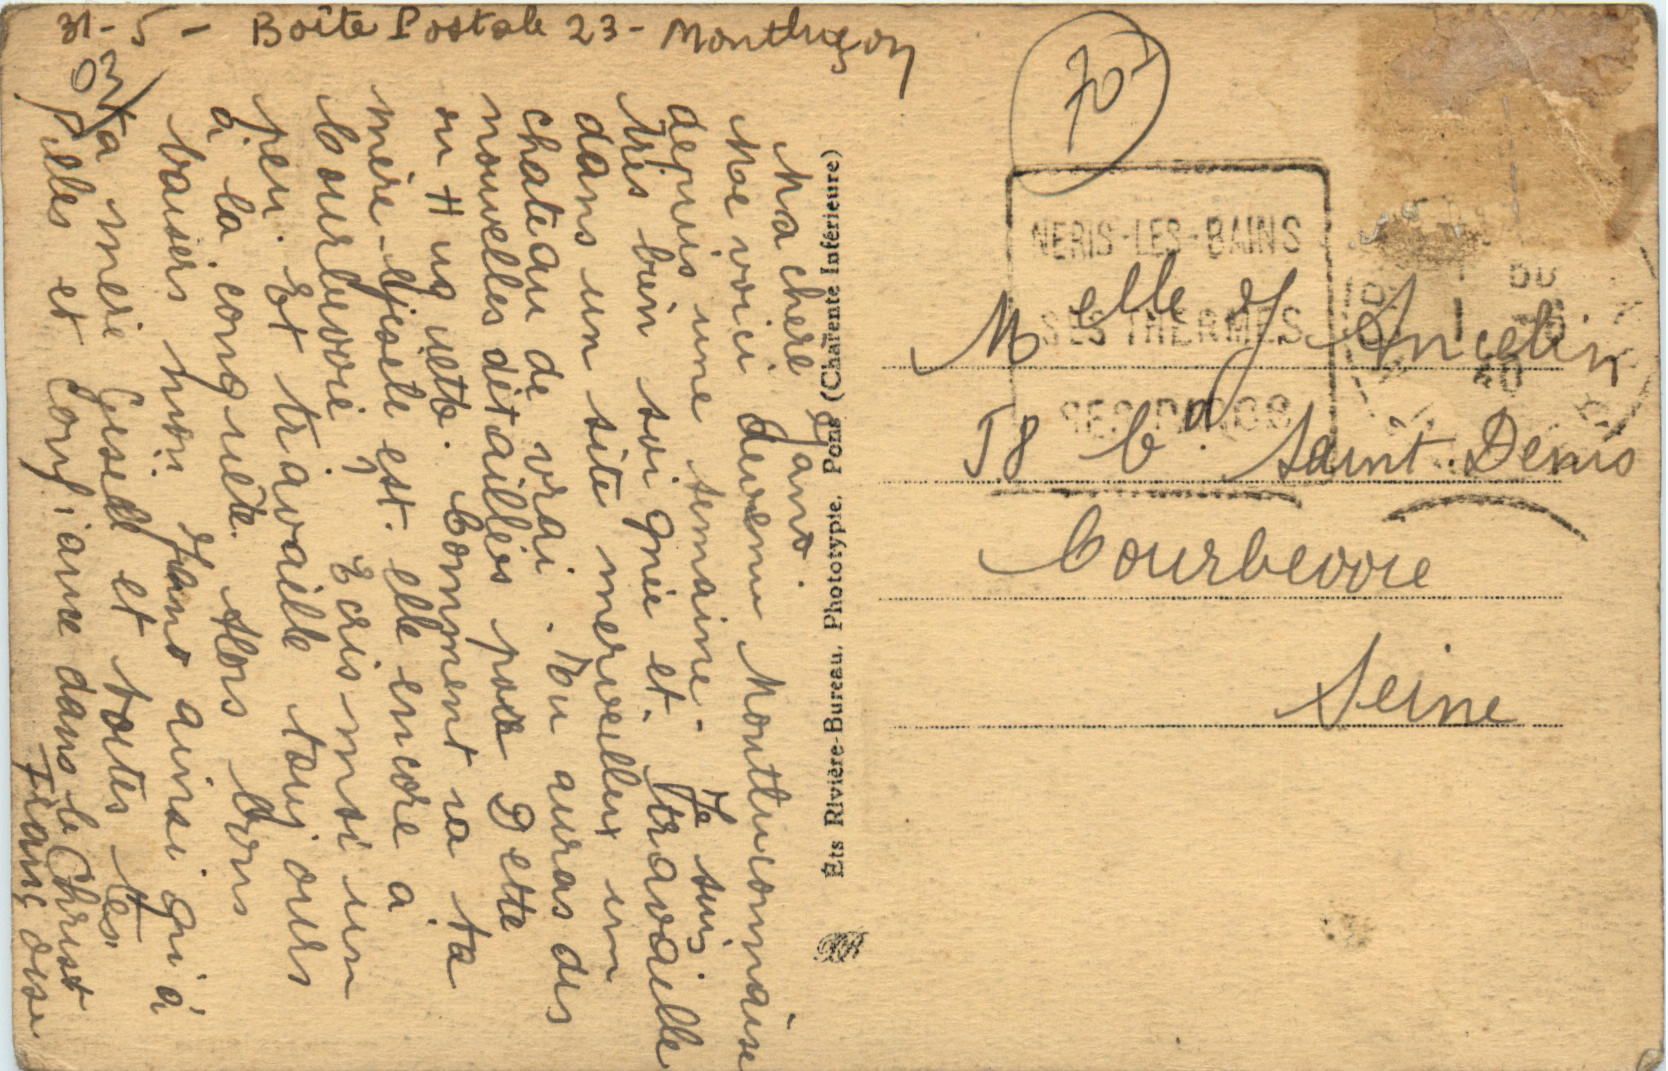 31-5- Boîte Postale 23- Montluçon
Ma chère Jano.
Me voici devenu Montluconnaise
depuis une semaine. Je suis
très bien soignée et travaille
dans un site merveilleux un
chateau de vrai. Tu auras des
nouvelles détaillés par Dette
ou Huguette. Comment va ta
mère-Gisèle est-elle encore à
Courbevoie? Ecris-moi un
peu. Et travaille toujours
à la conquête. Alors bons
baisers mon Jano ainsi qu'à
ta mère Gisèle et toutes tes
filles et confiance dans le Christ
Françoise
Éts Rivière-Bureau, Phototypie, Pons (Charente Inférieure)
70
NERIS-LES-BAINS
SES THERMES
SES PARCS
40
Melle J Ancelin
58 bd Saint Denis
Courbevoie
Seine